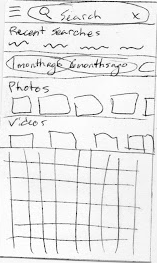 Search x
Recent Searches
1 month ago 6 months ago
Photos
Videos